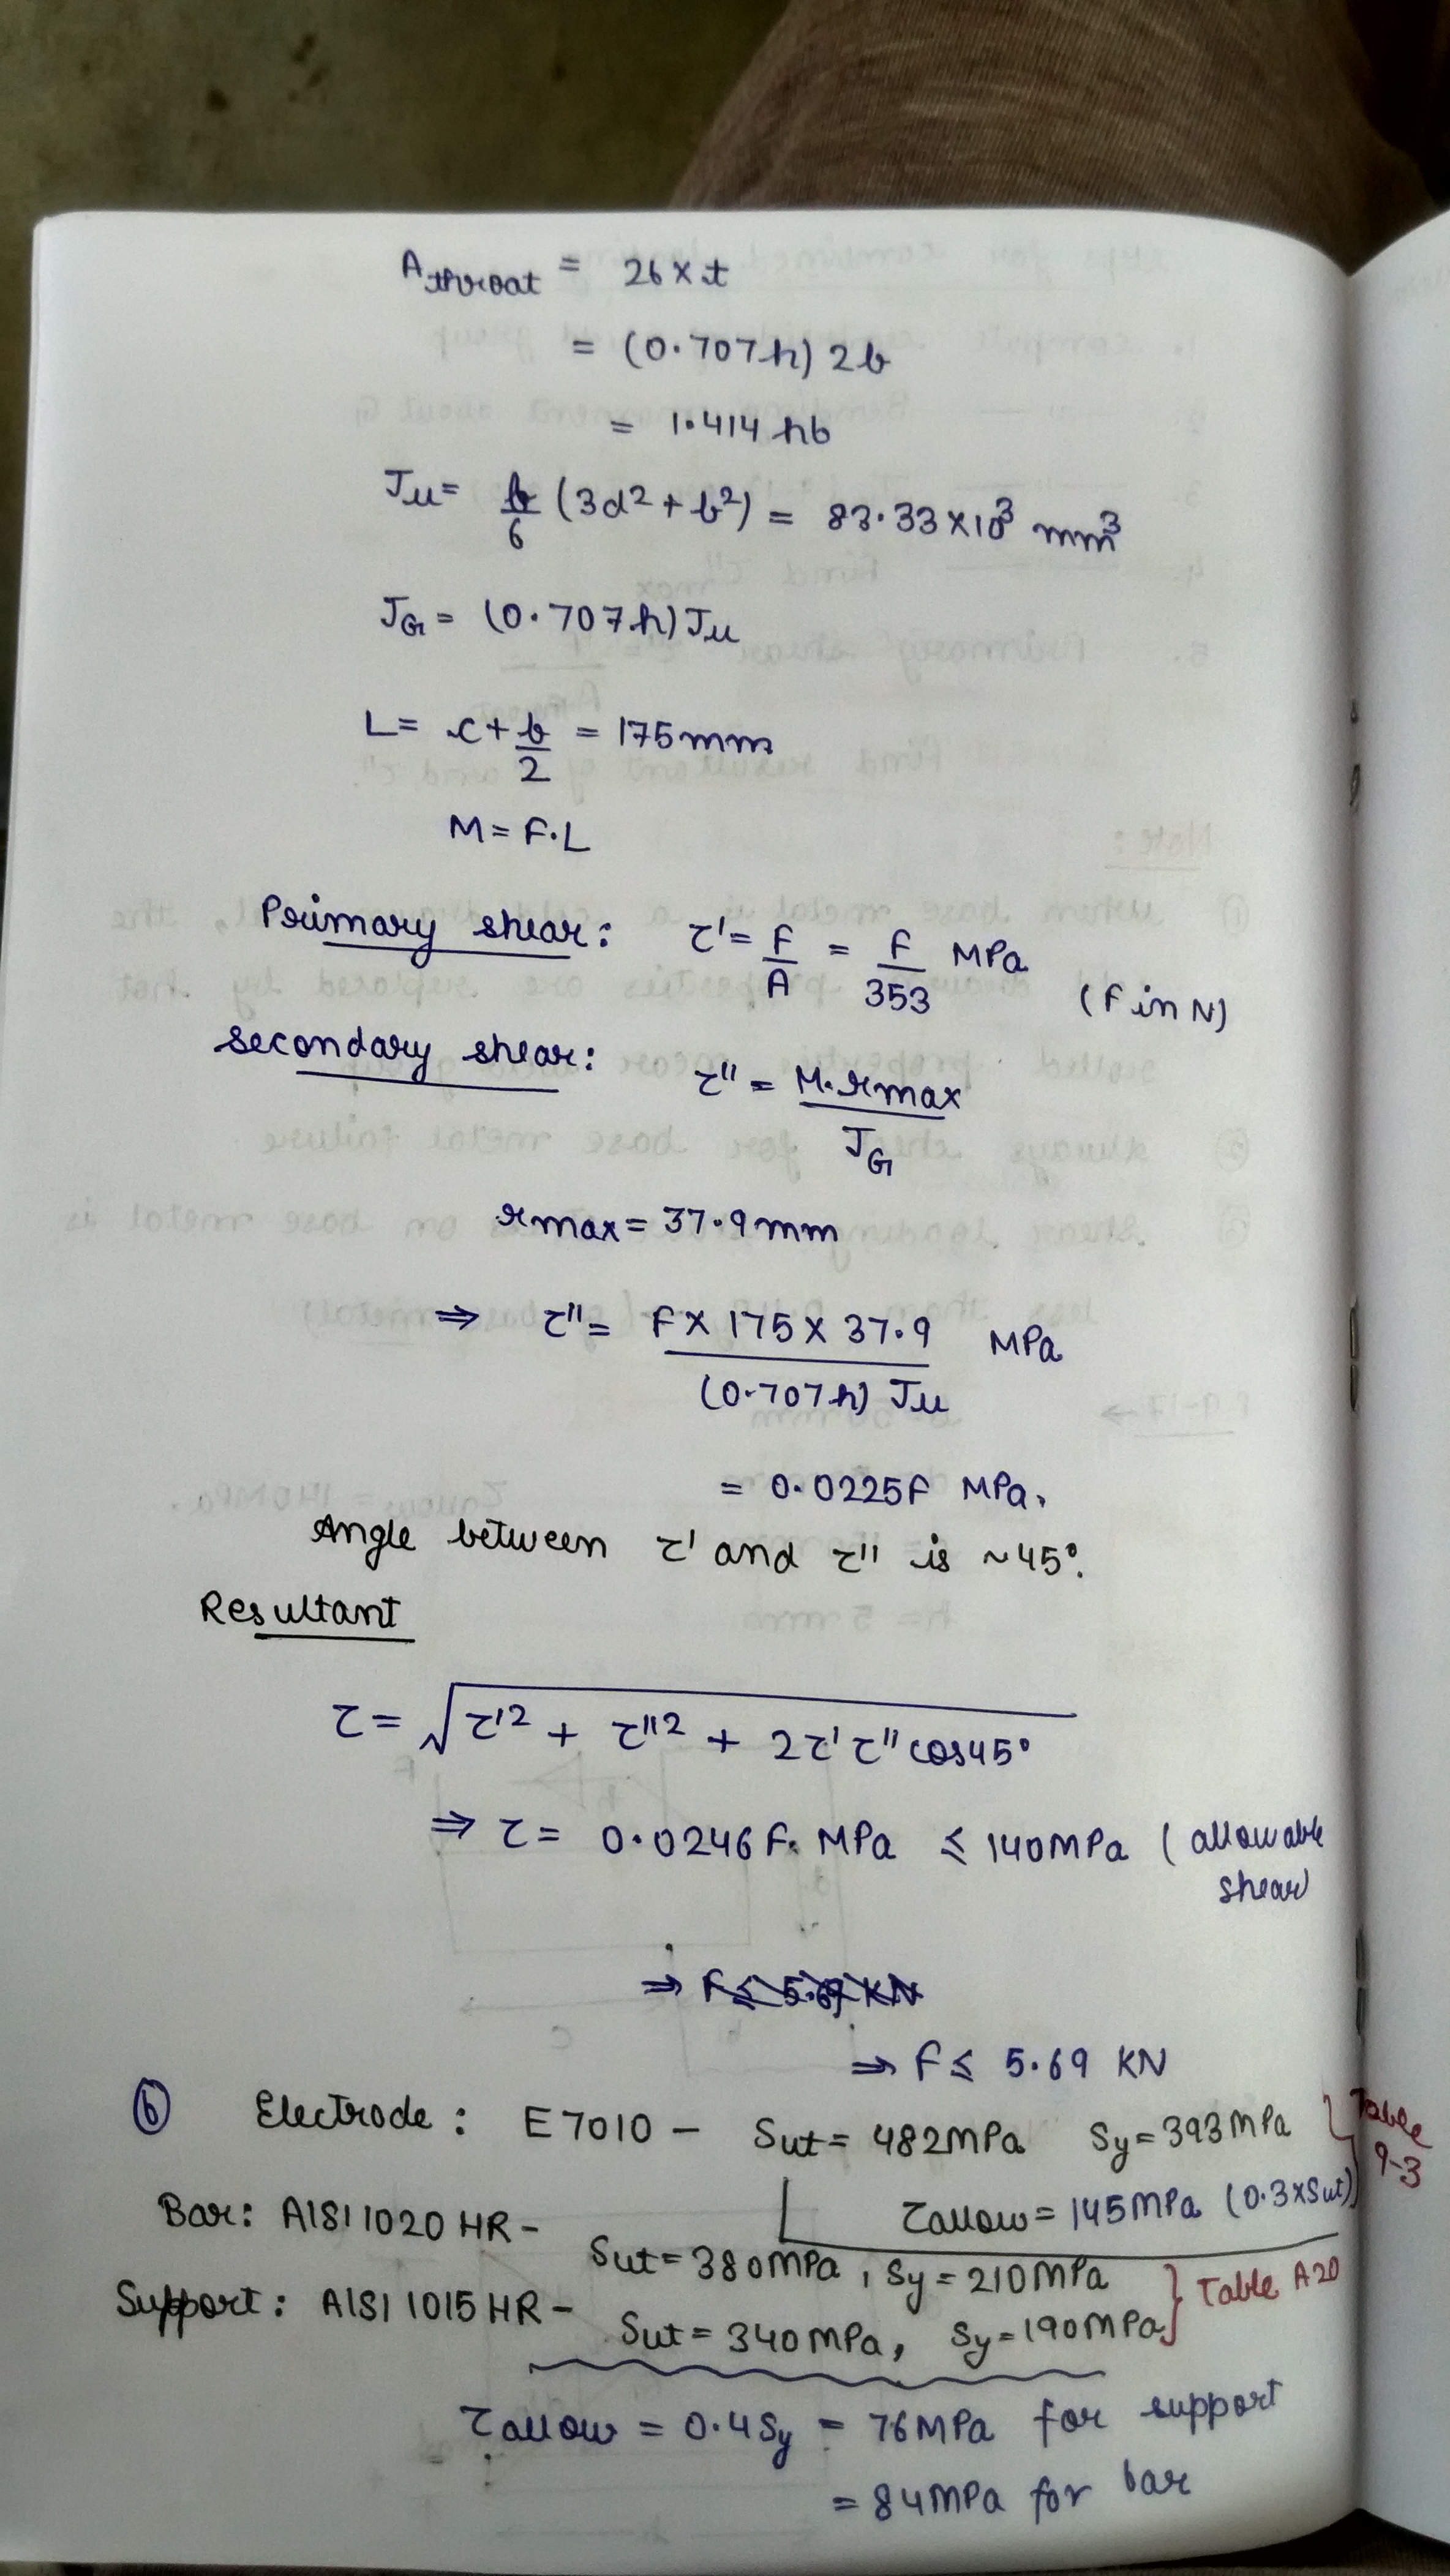 A throat = 2b × t
= (0.707h) 2b
= 1.414 hb
Ju = b/6 (3d² + b²) = 83.33 × 10³ mm³
JG = (0.707h) Ju
L = c + b/2 = 175mm
M = F.L
Primary shear: τ' = F/A = F/353 MPa (F in N)
Secondary shear: τ'' = M.rmax/JG
rmax = 37.9mm
⇒ τ'' = F × 175 × 37.9 / (0.707h) Ju MPa
= 0.0225F MPa.
Angle between τ' and τ'' is ~45°.
Resultant
τ = √(τ'² + τ''² + 2τ'τ'' cos45°)
⇒ τ = 0.0246F. MPa ⩽ 140MPa (allowable shear)
⇒ F ⩽ 5.69 KN
⇒ F ⩽ 5.69 KN
(b) Electrode: E7010 – Sut = 482MPa Sy = 393MPa } Table 9-3
τallow = 145MPa (0.3×Sut)
Bar: AISI 1020 HR – Sut = 380MPa, Sy = 210MPa } Table A20
Support: AISI 1015 HR – Sut = 340MPa, Sy = 190MPa
τallow = 0.4Sy = 76MPa for support
= 84MPa for bar